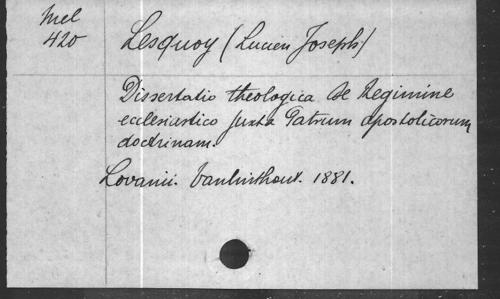 Mel
420
Lesquoy (Lucien Joseph)
Dissertatio theologica de Regimine
ecclesiastico juxta Patrum apostolicorum
doctrinam.
Lovanii. Vanlinthout. 1881.